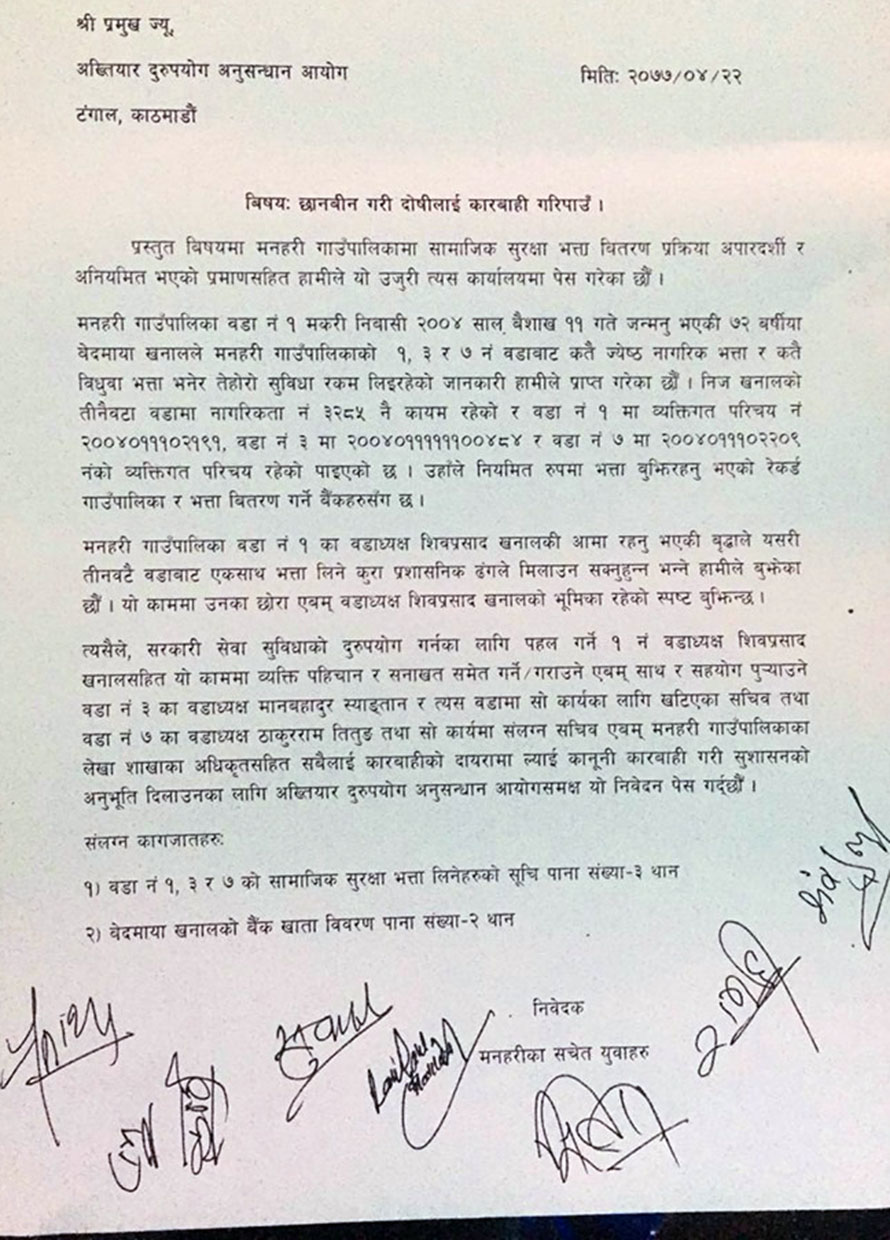 श्री प्रमुख ज्यू,
अख्तियार दुरुपयोग अनुसन्धान आयोग
मितिः २०७७/०४/२२
टंगाल, काठमाडौं
बिषयः छानबीन गरी दोषीलाई कारबाही गरिपाउँ ।
प्रस्तुत बिषयमा मनहरी गाउँपालिकामा सामाजिक सुरक्षा भत्ता बितरण प्रक्रिया अपारदर्शी र
अनियमित भएको प्रमाणसहित हामीले यो उजुरी त्यस कार्यालयमा पेस गरेका छौं ।
मनहरी गाउँपालिका वडा नं १ मकरी निबासी २००४ साल बैशाख ११ गते जन्मनु भएकी ७२ बर्षीया
बेदमाया खनालले मनहरी गाउँपालिकाको १, ३ र ७ नं वडाबाट कतै ज्येष्ठ नागरिक भत्ता र कतै
बिधुबा भत्ता भनेर तेहोरो सुविधा रकम लिइरहेको जानकारी हामीले प्राप्त गरेका छौं । निज खनालको
तीनैवटा वडामा नागरिकता नं ३२८५ नै कायम रहेको र वडा नं १ मा ब्यक्तिगत परिचय नं
२००४०१११०२१९१, वडा नं ३ मा २००४०११११११००४८४ र वडा नं ७ मा २००४०१११०२२०९
नंको ब्यक्तिगत परिचय रहेको पाइएको छ । उहाँले नियमित रुपमा भत्ता बुझिरहनु भएको रेकर्ड
गाउँपालिका र भत्ता बितरण गर्ने बैंकहरुसँग छ ।
मनहरी गाउँपालिका वडा नं १ का वडाध्यक्ष शिवप्रसाद खनालकी आमा रहनु भएकी बृद्धाले यसरी
तीनवटै वडाबाट एकसाथ भत्ता लिने कुरा प्रशासनिक ढंगले मिलाउन सक्नुहुन्न भन्ने हामीले बुझेका
छौं । यो काममा उनका छोरा एबम् वडाध्यक्ष शिवप्रसाद खनालको भूमिका रहेको स्पष्ट बुझिन्छ ।
त्यसैले, सरकारी सेवा सुविधाको दुरुपयोग गर्नका लागि पहल गर्ने १ नं वडाध्यक्ष शिवप्रसाद
खनालसहित यो काममा व्यक्ति पहिचान र सनाखत समेत गर्ने/गराउने एबम् साथ र सहयोग पुऱ्याउने
वडा नं ३ का वडाध्यक्ष मानबहादुर स्याङ्तान र त्यस वडामा सो कार्यका लागि खटिएका सचिव तथा
वडा नं ७ का वडाध्यक्ष ठाकुरराम तितुङ तथा सो कार्यमा संलग्न सचिव एबम् मनहरी गाउँपालिकाका
लेखा शाखाका अधिकृतसहित सबैलाई कारबाहीको दायरामा ल्याई कानूनी कारबाही गरी सुशासनको
अनुभूति दिलाउनका लागि अख्तियार दुरुपयोग अनुसन्धान आयोगसमक्ष यो निवेदन पेस गर्दछौं ।
संलग्न कागजातहरुः
१) वडा नं १, ३ र ७ को सामाजिक सुरक्षा भत्ता लिनेहरुको सूचि पाना संख्या-३ थान
२) बेदमाया खनालको बैंक खाता विवरण पाना संख्या-२ थान
निवेदक
मनहरीका सचेत युवाहरु